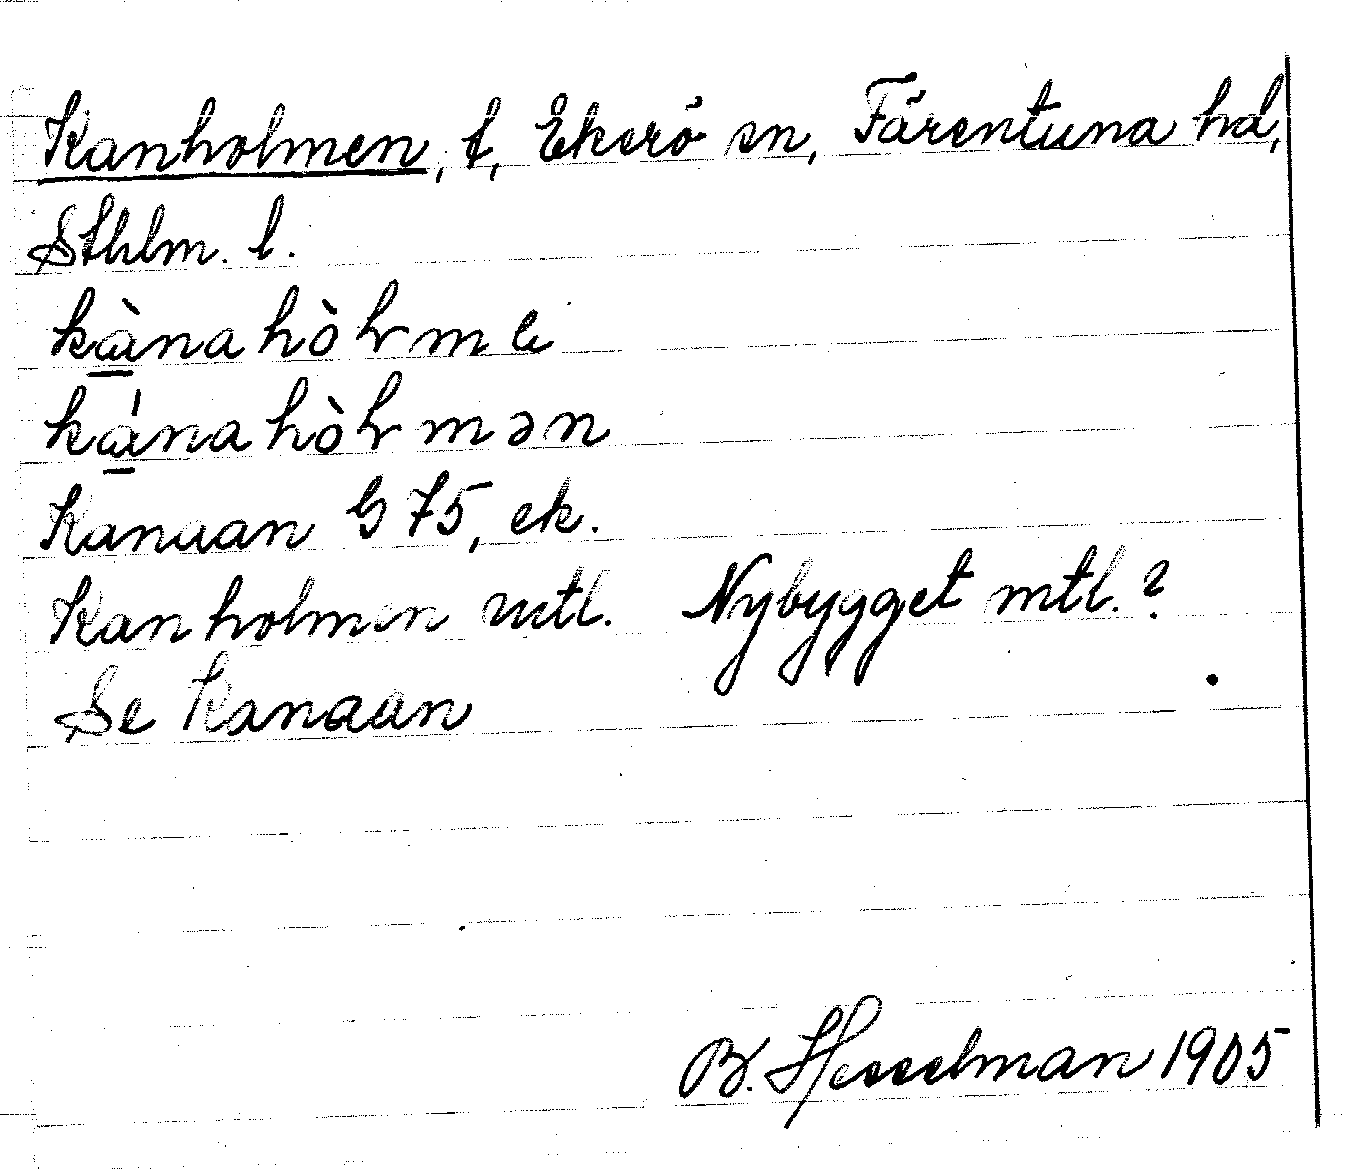 Kanholmen, t, Ekerö sn, Färentuna hd,
Sthlm. l.
kànahòlme
kánahòlmən
Kanaan G 75, ek.
Kanholmen mtl. Nybygget mtl.?
Se Kanaan
B. Hesselman 1905